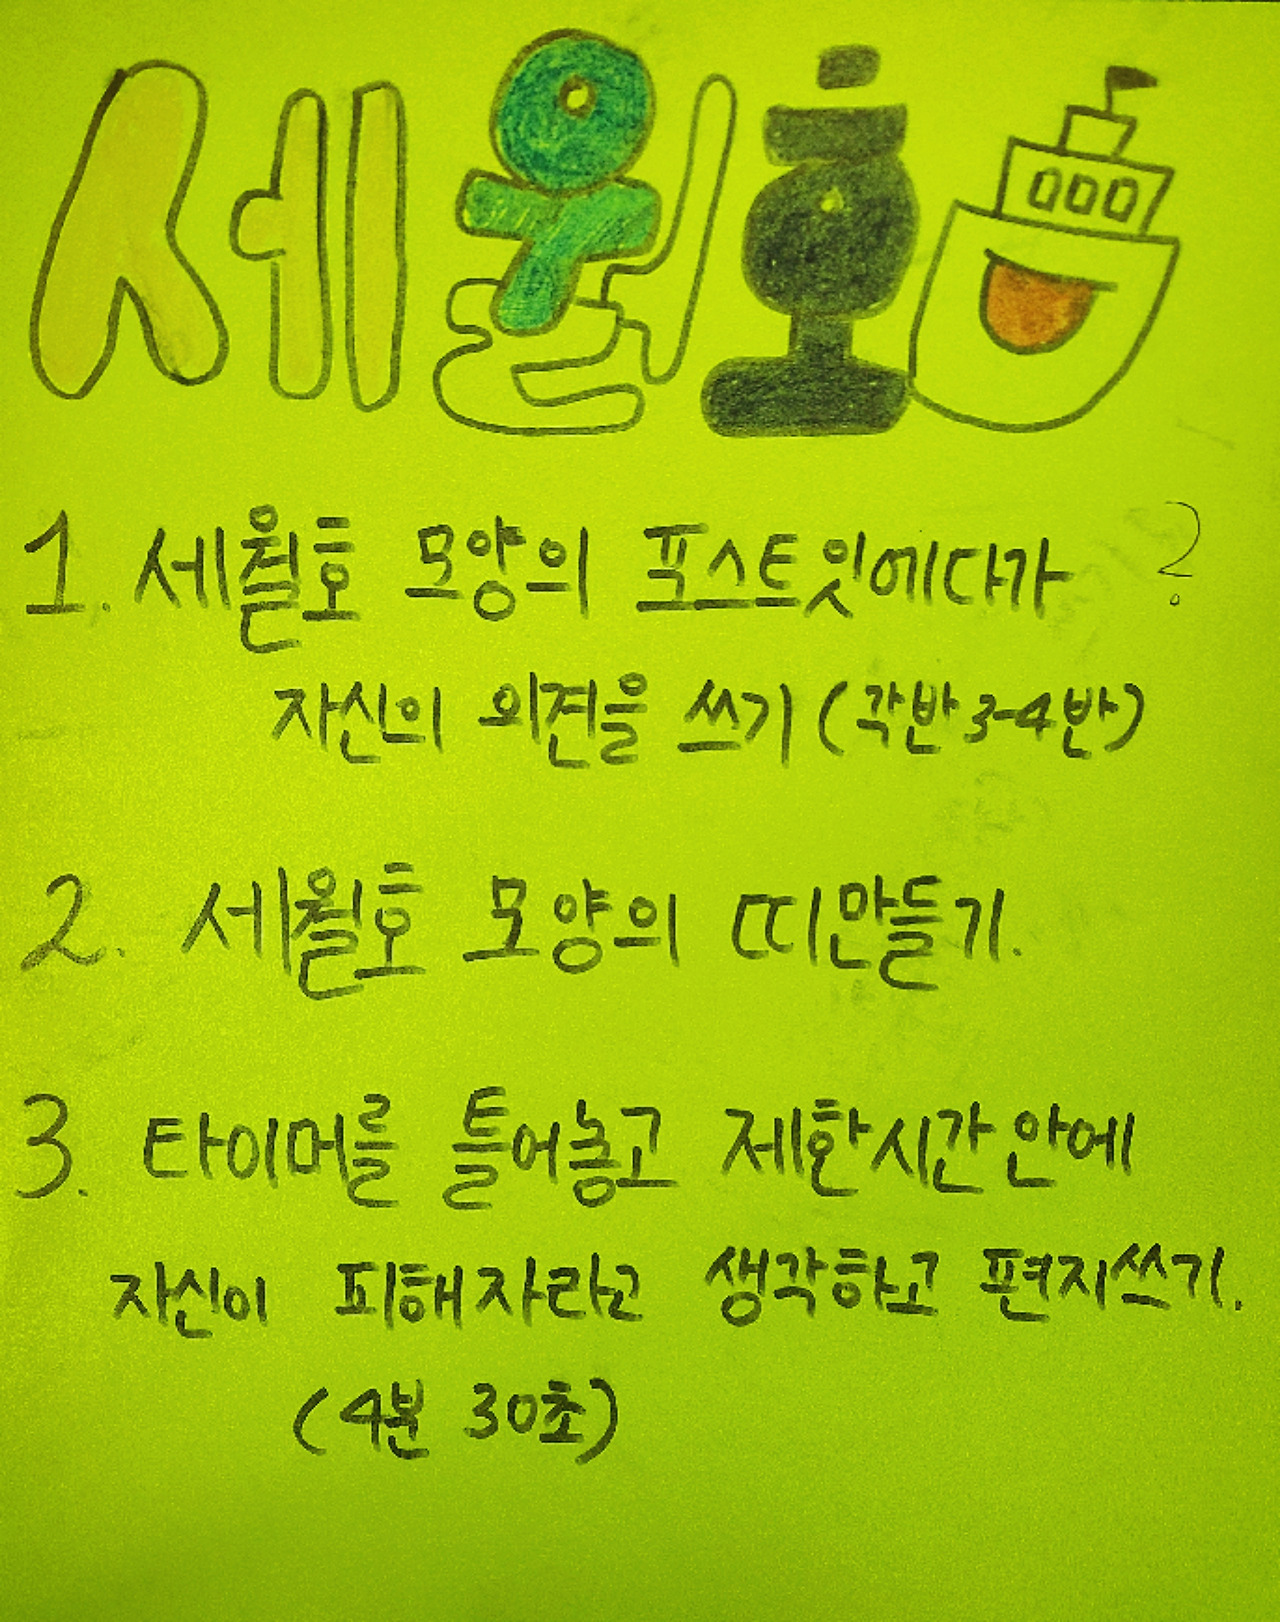 세월호
1. 세월호 모양의 포스트잇에다가 ?
자신의 의견을 쓰기 (각반 3-4반)
2. 세월호 모양의 띠만들기.
3. 타이머를 틀어놓고 제한시간안에
자신이 피해자라고 생각하고 편지쓰기.
(4분 30초)